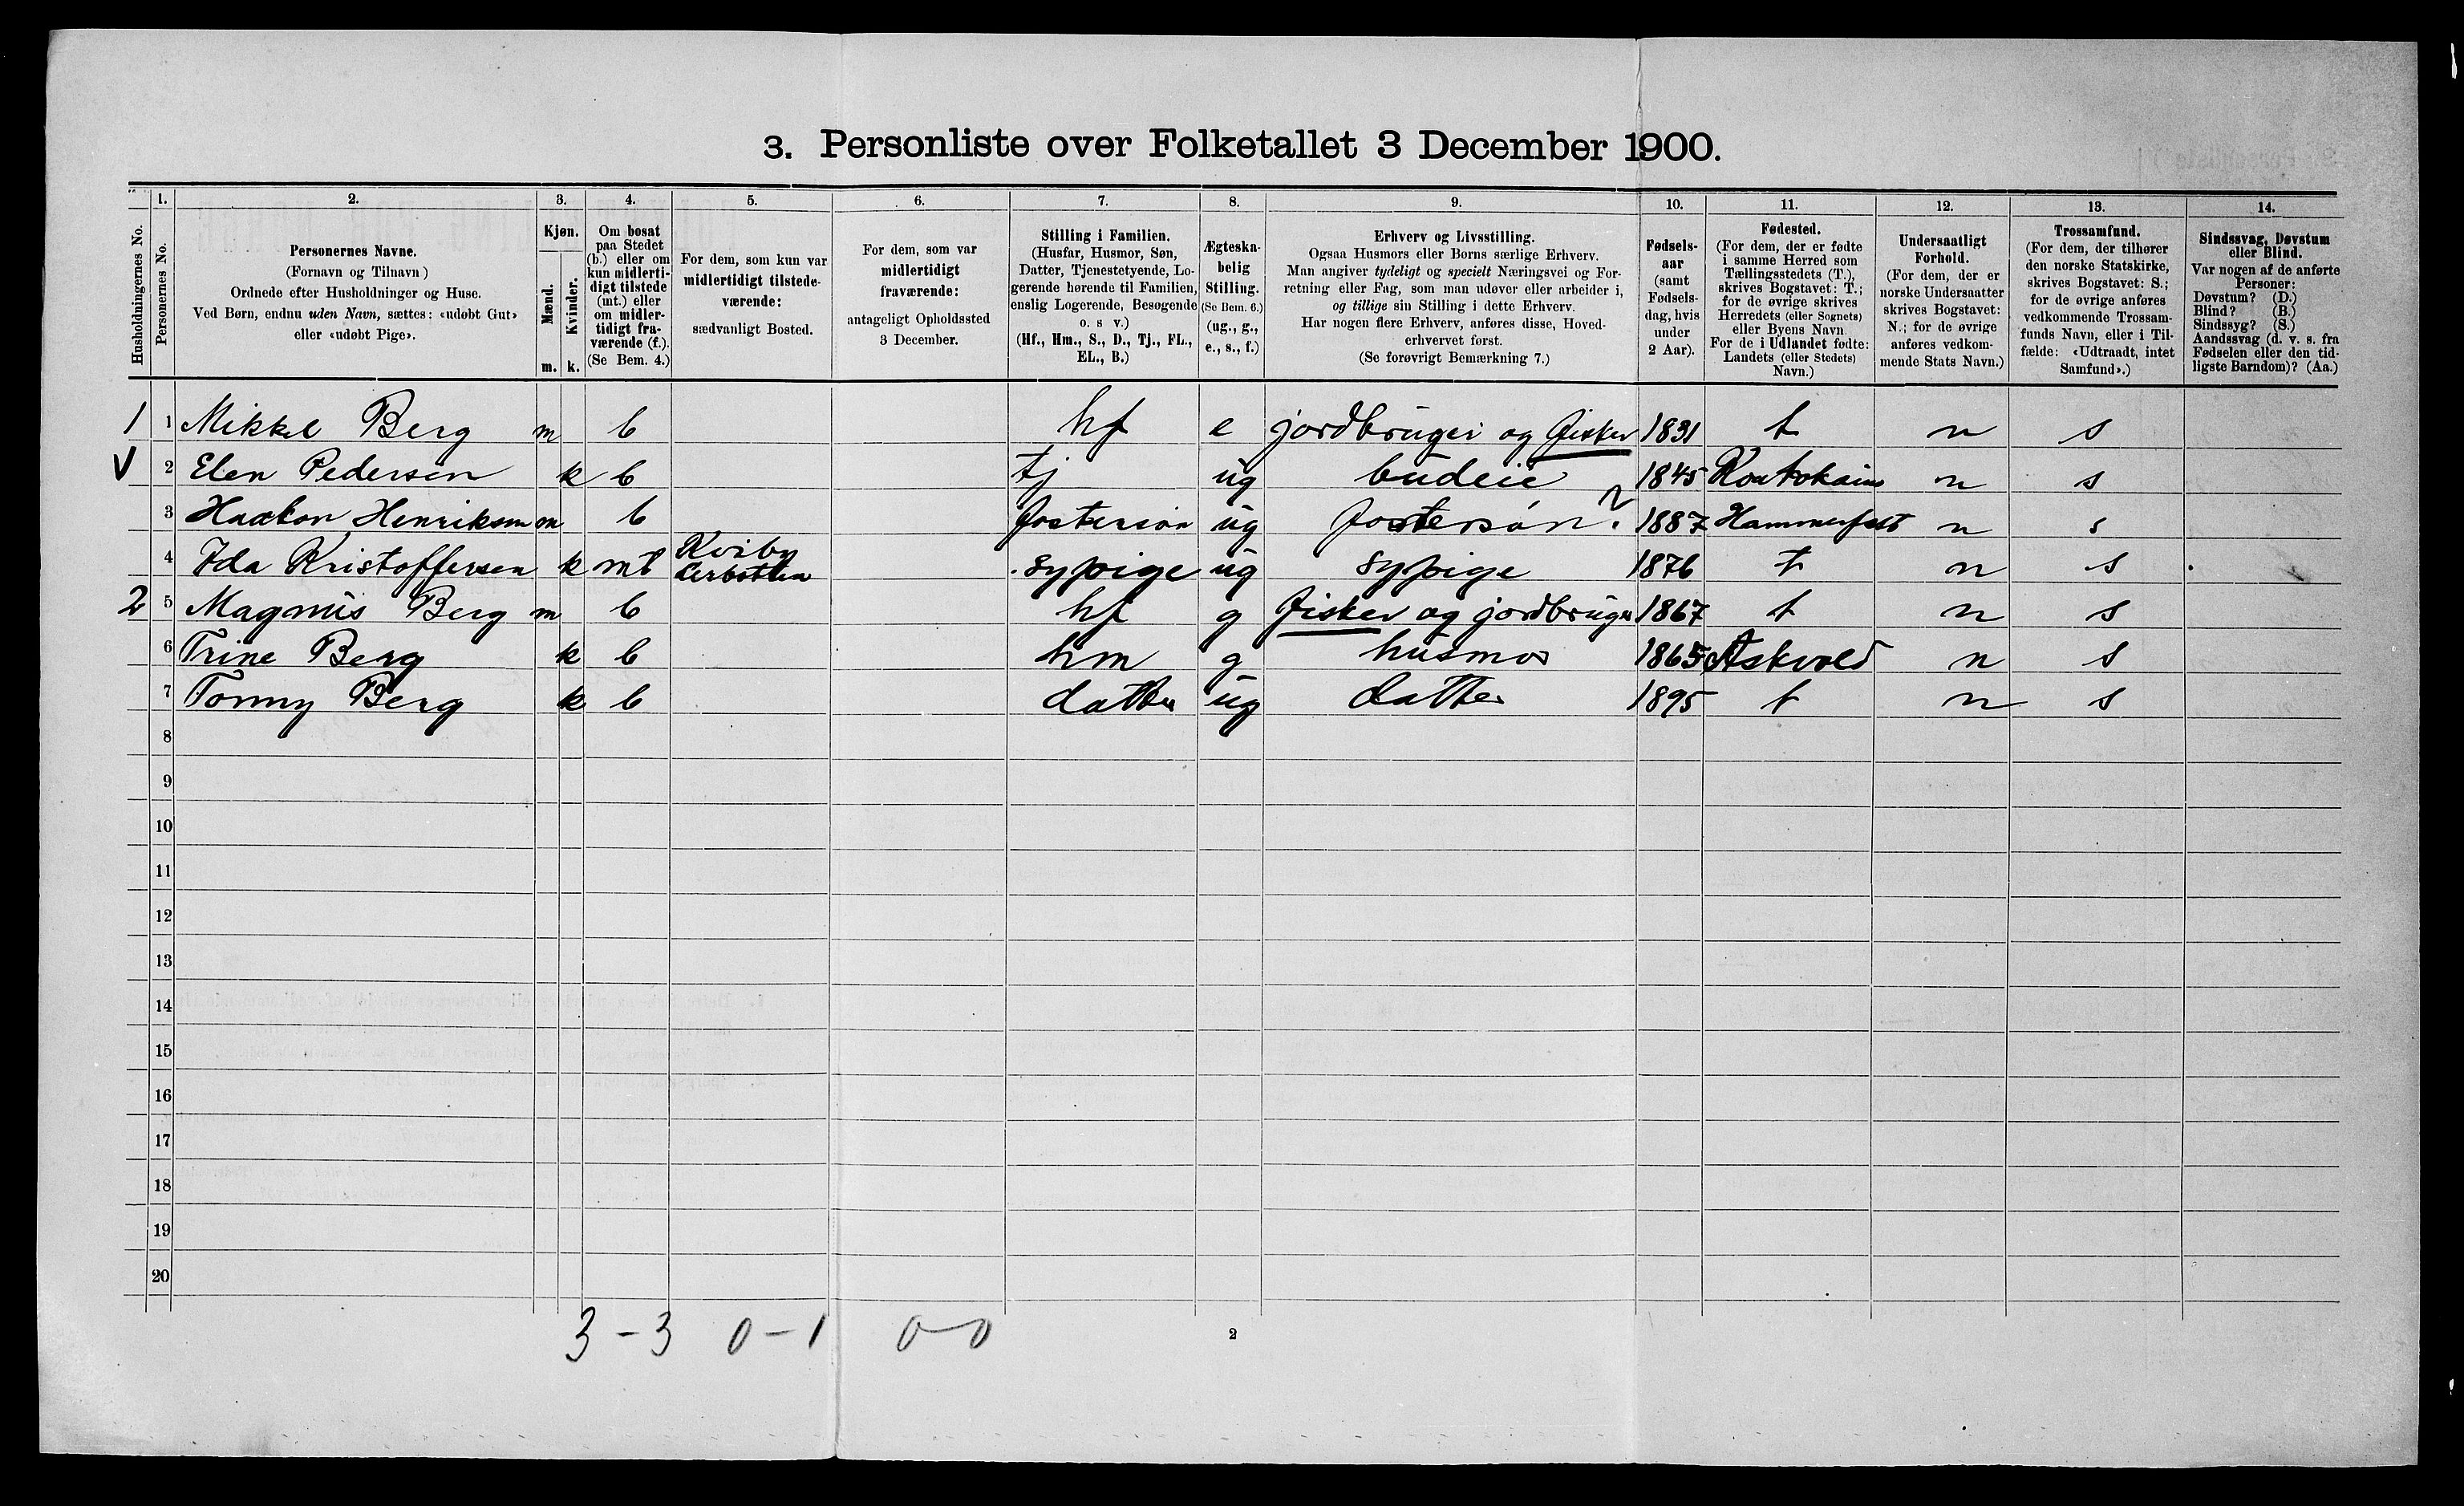 3. Personliste over Folketallet 3 December 1900.
1. 2. 3. 4. 5. 6. 7. 8. 9. 10. 11. 12. 13. 14.
Husholdningernes No.
Personernes No.
Personernes Navne.
(Fornavn og Tilnavn)
Ordnede efter Husholdninger og Huse.
Ved Børn, endnu uden Navn, sættes: «udøbt Gut»
eller «udøbt Pige».
Kjøn.
Mænd.
Kvinder.
m. k.
Om bosat
paa Stedet
(b.) eller om
kun midlerti-
digt tilstede
(mt.) eller
om midler-
tidigt fra-
værende (f.).
(Se Bem. 4.)
For dem, som kun var
midlertidigt tilstede-
værende:
sædvanligt Bosted.
For dem, som var
midlertidigt
fraværende:
antageligt Opholdssted
3 December.
Stilling i Familien.
(Husfar, Husmor, Søn,
Datter, Tjenestetyende, Lo-
gerende hørende til Familien,
enslig Logerende, Besøgende
o. s v.)
(Hf., Hm., S., D., Tj., FL.,
EL., B.)
Ægteska-
belig
Stilling.
(Se Bem. 6.)
(ug., g.,
e., s., f.)
Erhverv og Livsstilling.
Ogsaa Husmors eller Børns særlige Erhverv.
Man angiver tydeligt og specielt Næringsvei og For-
retning eller Fag, som man udøver eller arbeider i,
og tillige sin Stilling i dette Erhverv.
Har nogen flere Erhverv, anføres disse, Hoved-
erhvervet først.
(Se forøvrigt Bemærkning 7.)
Fødsels-
aar
(samt
Fødsels-
dag, hvis
under
2 Aar).
Fødested.
(For dem, der er fødte
i samme Herred som
Tællingsstedets (T.),
skrives Bogstavet: T.;
for de øvrige skrives
Herredets (eller Sognets)
eller Byens Navn.
For de i Udlandet fødte:
Landets (eller Stedets)
Navn.)
Undersaatligt
Forhold.
(For dem, der er
norske Undersaatter
skrives Bogstavet:
N.; for de øvrige
anføres vedkom-
mende Stats Navn.)
Trossamfund.
(For dem, der tilhører
den norske Statskirke,
skrives Bogstavet: S.;
for de øvrige anføres
vedkommende Trossam-
funds Navn, eller i Til-
fælde: «Udtraadt, intet
Samfund».)
Sindssvag, Døvstum
eller Blind.
Var nogen af de anførte
Personer:
Døvstum? (D.)
Blind? (B.)
Sindssyg? (S.)
Aandssvag (d. v. s. fra
Fødselen eller den tid-
ligste Barndom)? (Aa.)
1 1 Mikkel Berg m b hf e jordbruger og fisker 1831 t n s
V 2 Elen Pedersen k b tj ug budeie 1845 Koutokaino n s
3 Haakon Henriksen m b fostersøn ug fostersøn ? 1887 Hammerfest n s
4 Ida Kristoffersen k mt Kviby Lerbotten sypige ug sypige 1876 t n s
2 5 Magnus Berg m b hf g fisker og jordbruger 1867 t n s
6 Trine Berg k b hm g husmor 1865 Askvold n s
7 Tonny Berg k b datter ug datter 1895 t n s
8
9
10
11
12
13
14
15
16
17
18
19
20
3 - 3 0 - 1 0-0
2